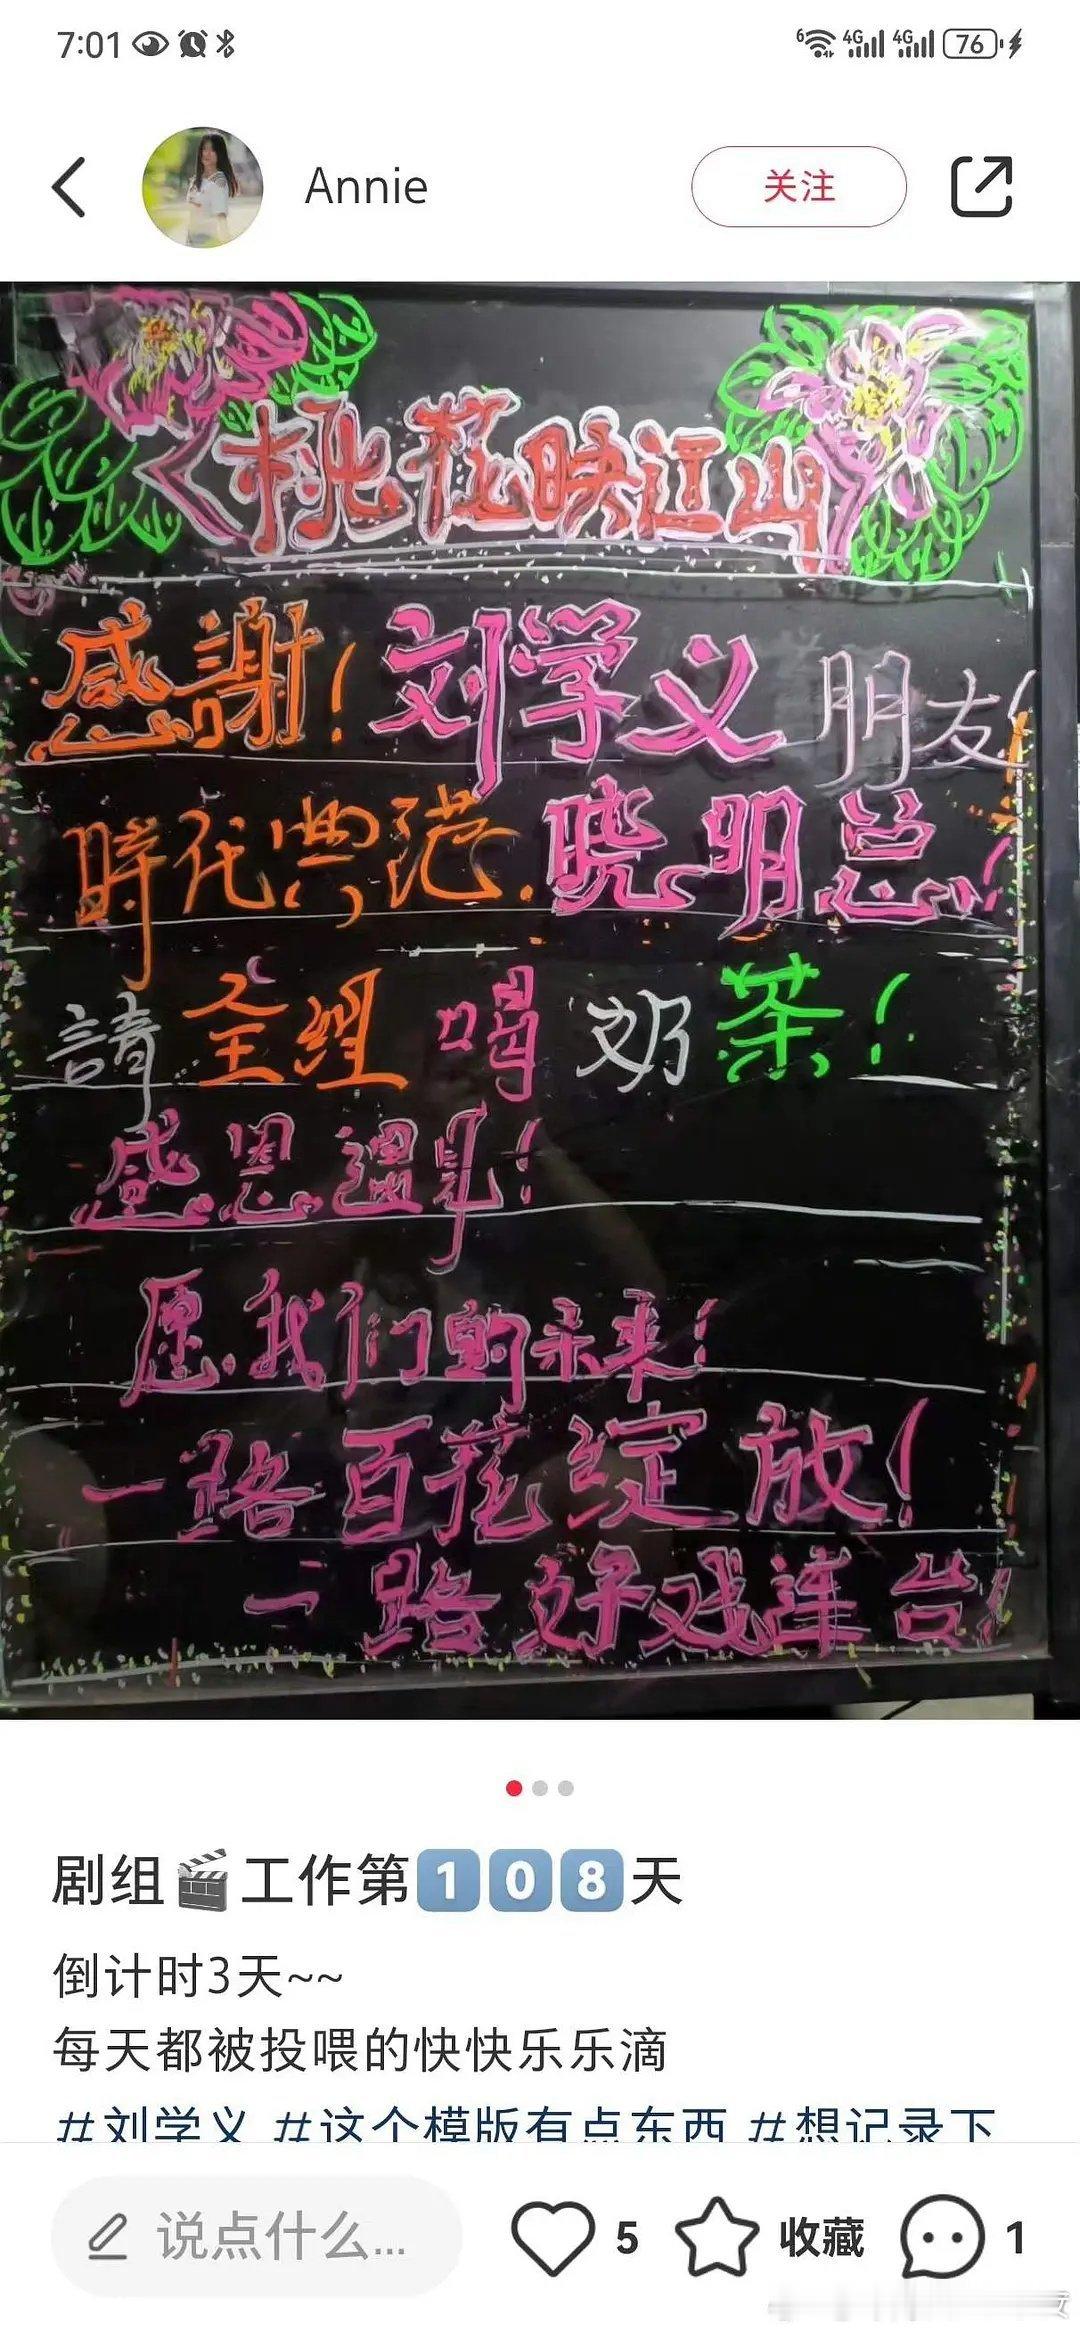 7:01
6 4G 4G 76
Annie
关注
桃花映江山
感謝!刘学义朋友!
時代典范.晓明总!
請全组喝奶茶!
感恩遇见!
愿我们的未来!
一路百花绽放!
一路好戏连台!
剧组🎬工作第1️⃣0️⃣8️⃣天
倒计时3天~~
每天都被投喂的快快乐乐滴
#刘学义 #这个模版有点东西 #想记录下
说点什么... 5 收藏 1